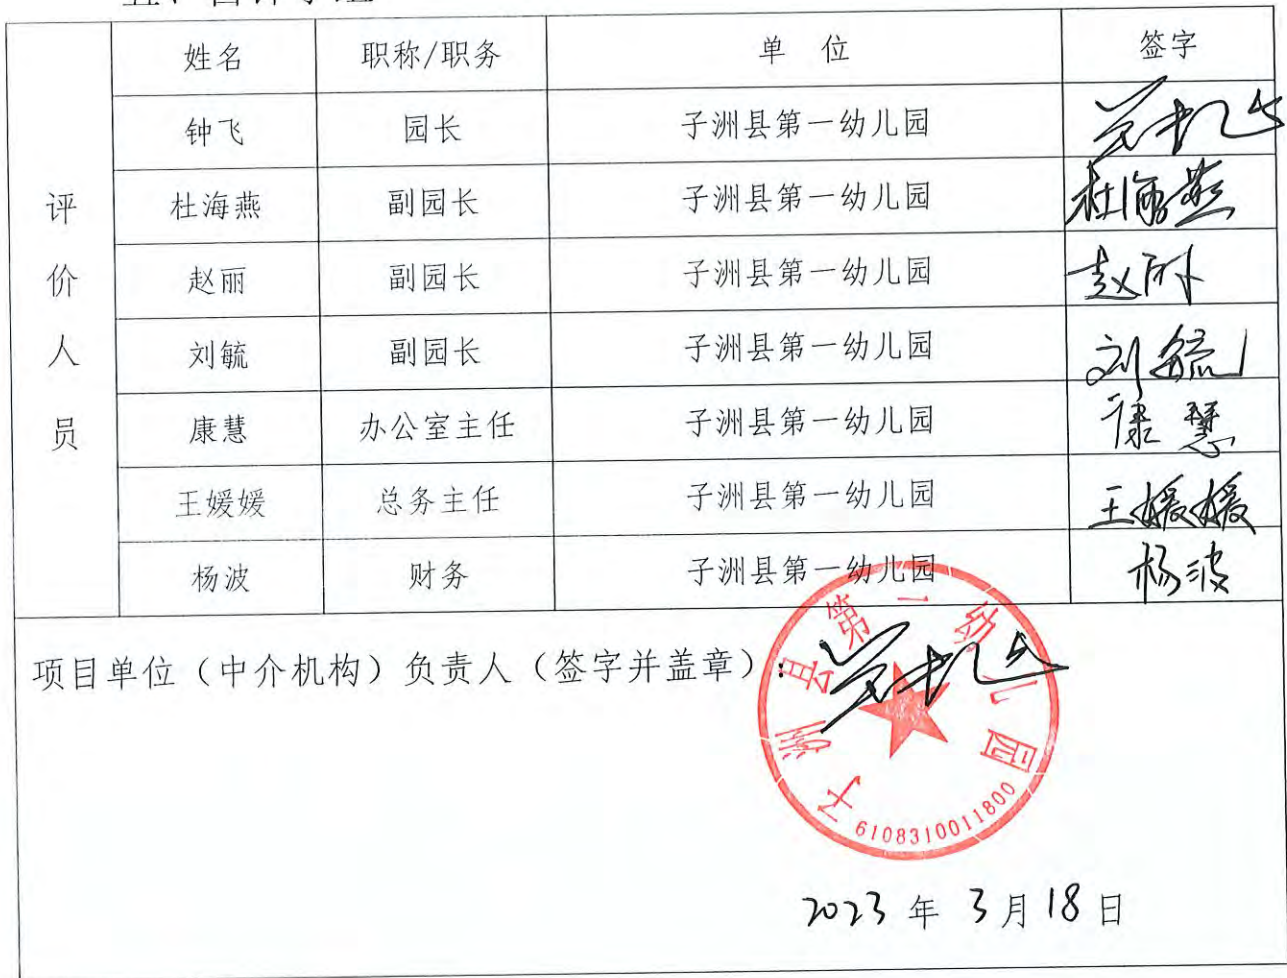 姓名 职称/职务 单 位 签字
评价人员
钟飞 园长 子洲县第一幼儿园
杜海燕 副园长 子洲县第一幼儿园 杜海燕
赵丽 副园长 子洲县第一幼儿园 赵丽
刘毓 副园长 子洲县第一幼儿园 刘毓
康慧 办公室主任 子洲县第一幼儿园 康慧
王媛媛 总务主任 子洲县第一幼儿园 王媛媛
杨波 财务 子洲县第一幼儿园 杨波
项目单位（中介机构）负责人（签字并盖章）：
子洲县第一幼儿园
6108310011800
2023 年 3 月 18 日